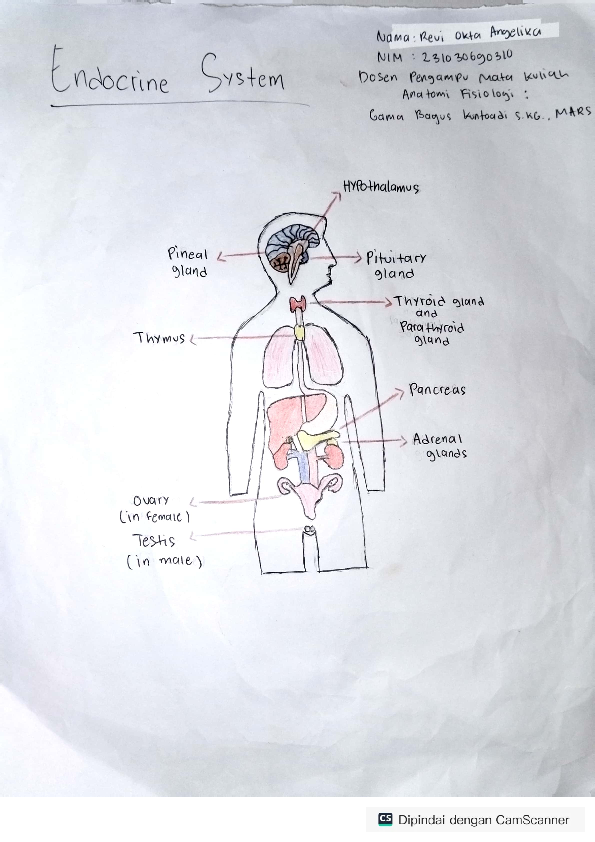 Endocrine System
Nama: Revi Okta Angelika
NIM : 231030690310
Dosen Pengampu Mata Kuliah
Anatomi Fisiologi :
Gama Bagus Kuntoadi S.KG., MARS
Hypothalamus
Pineal
gland
Pituitary
gland
Thyroid gland
and
Parathyroid
gland
Thymus
Pancreas
Adrenal
glands
Ovary
(in female)
Testis
(in male)
CS Dipindai dengan CamScanner